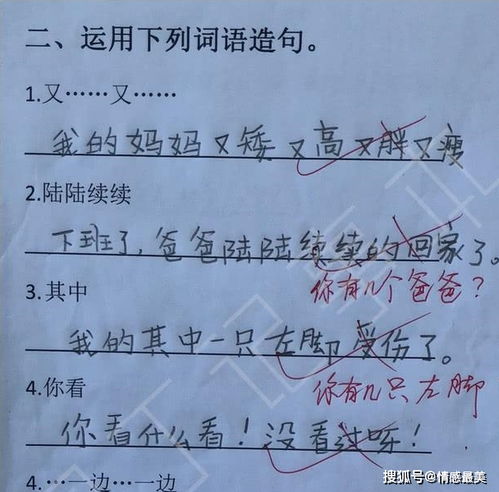 二、运用下列词语造句。
1.又……又……
我的妈妈又矮又高又胖又瘦
2.陆陆续续
下班了，爸爸陆陆续续的回家了。
你有几个爸爸？
3.其中
我的其中一只左脚受伤了。
你有几只左脚
4.你看
你看什么看！没看过呀！
4.…一边…一边
搜狐号@情感最美